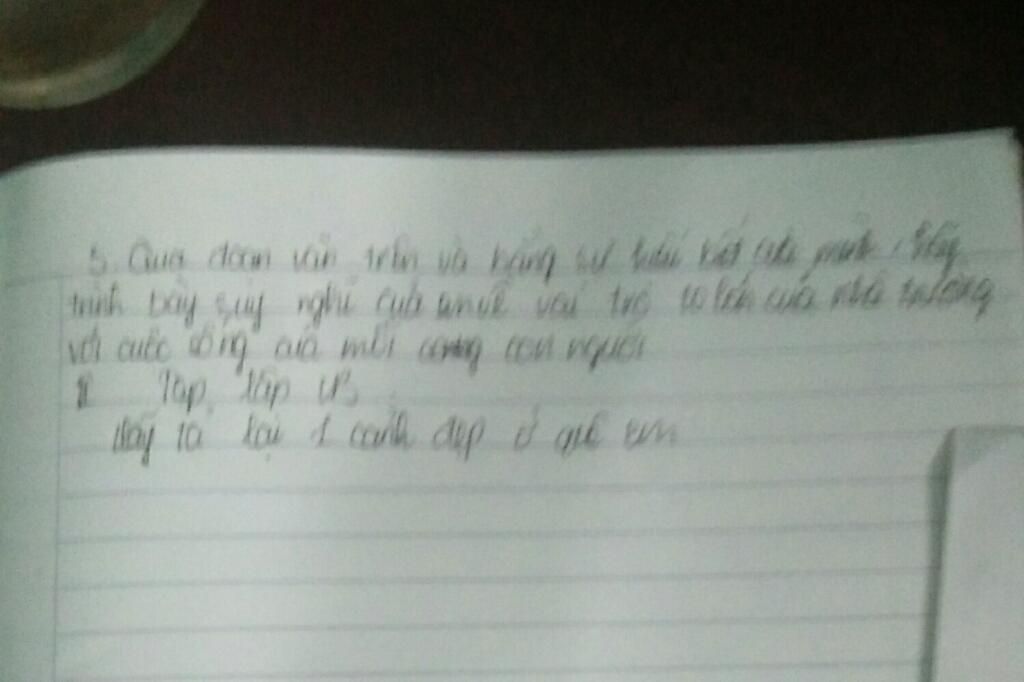 5. Qua đoạn văn trên và bằng sự hiểu biết của mình, Hãy
trình bày suy nghĩ của em về vai trò to lớn của nhà trường
với cuộc sống của mỗi con người
II Tạp lập VB
Hãy tả lại 1 cảnh đẹp ở quê em